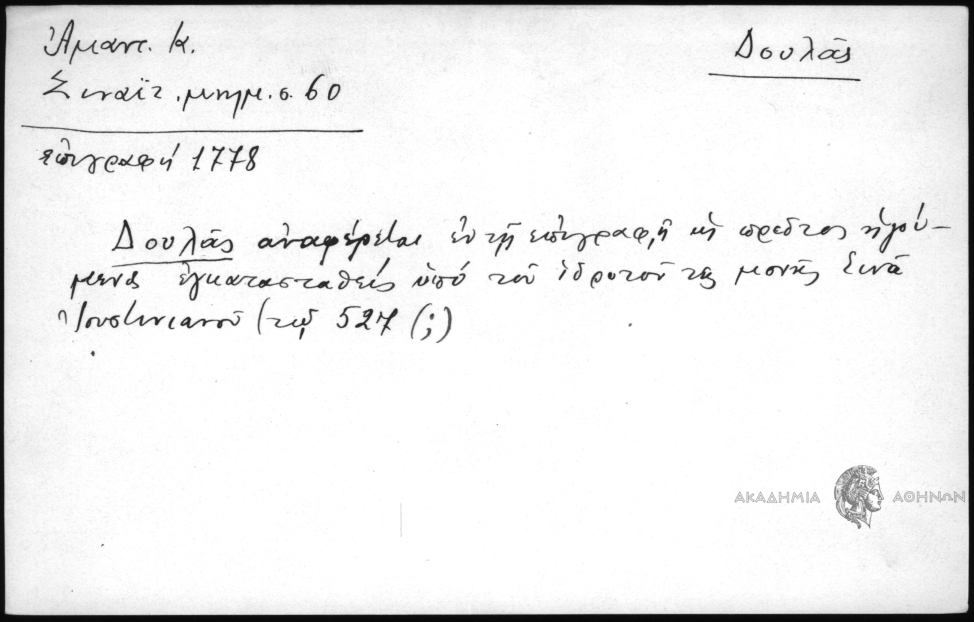 Ἀμαντ. Κ.
Δουλᾶς
Σιναϊτ. μνημ. σ. 60
ἐπιγραφή 1778
Δουλᾶς ἀναφέρεται ἐν τῇ ἐπιγραφῇ ὡς πρῶτος ἡγού-
μενος ἐγκατασταθείς ὑπό τοῦ ἱδρυτοῦ τῆς μονῆς Σινᾶ
Ἰουστινιανοῦ (τῷ 527 (;)
ΑΚΑΔΗΜΙΑ ΑΘΗΝΩΝ